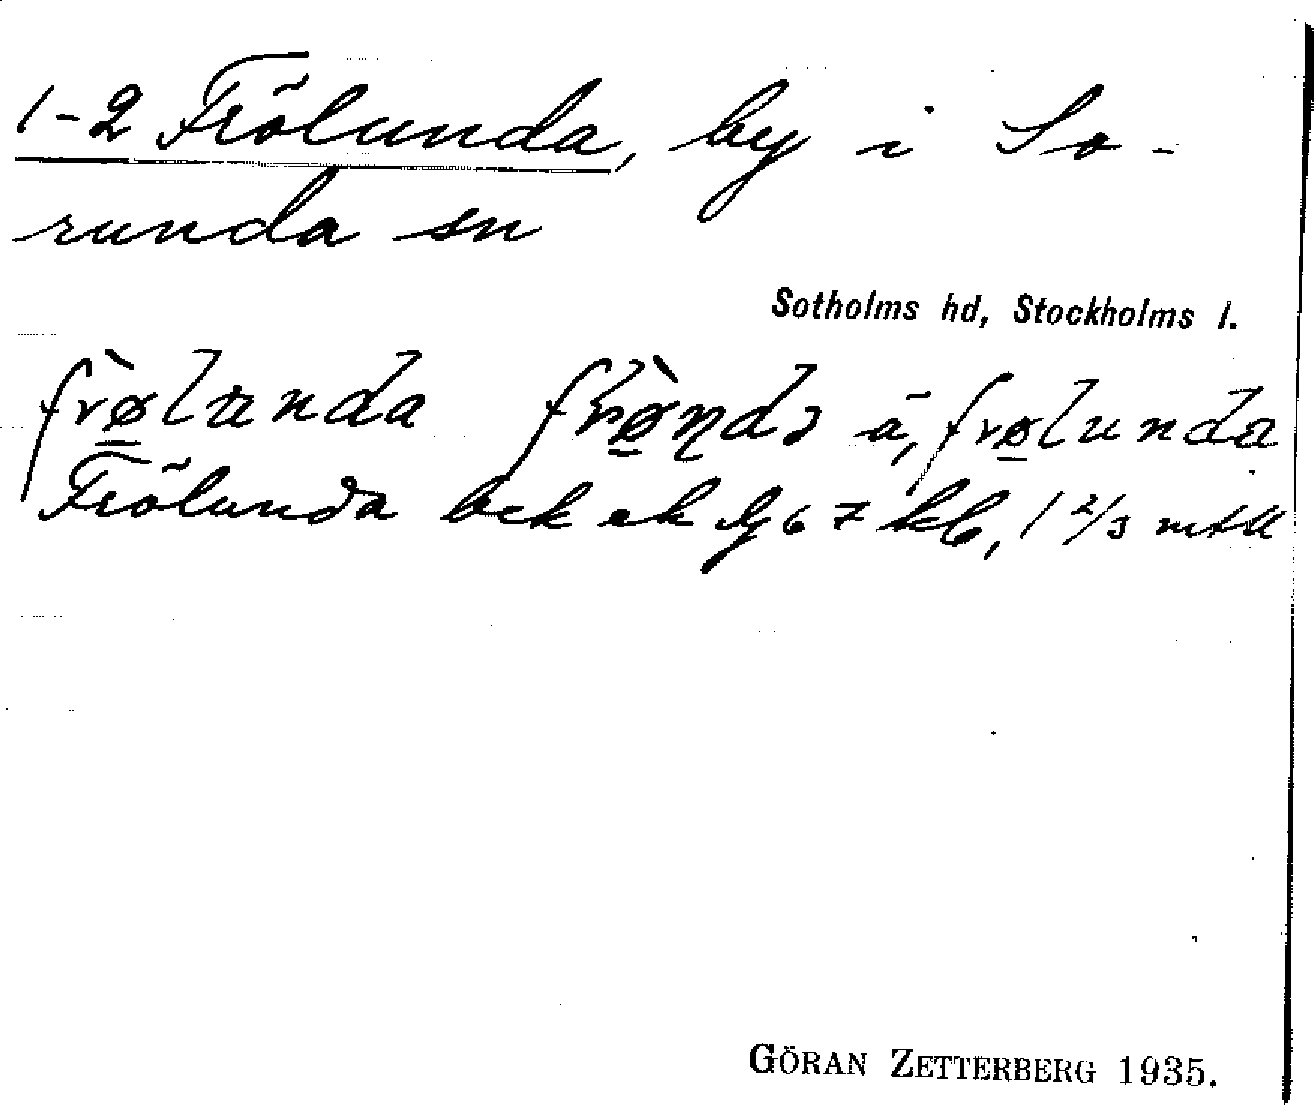 1-2 Frölunda, by i So-
runda sn
Sotholms hd, Stockholms l.
frø̀lunda frø̀ndɔ ä, frølunda
Frölunda bck ek lg 6 7 kb, 1 2/3 mtl
GÖRAN ZETTERBERG 1935.